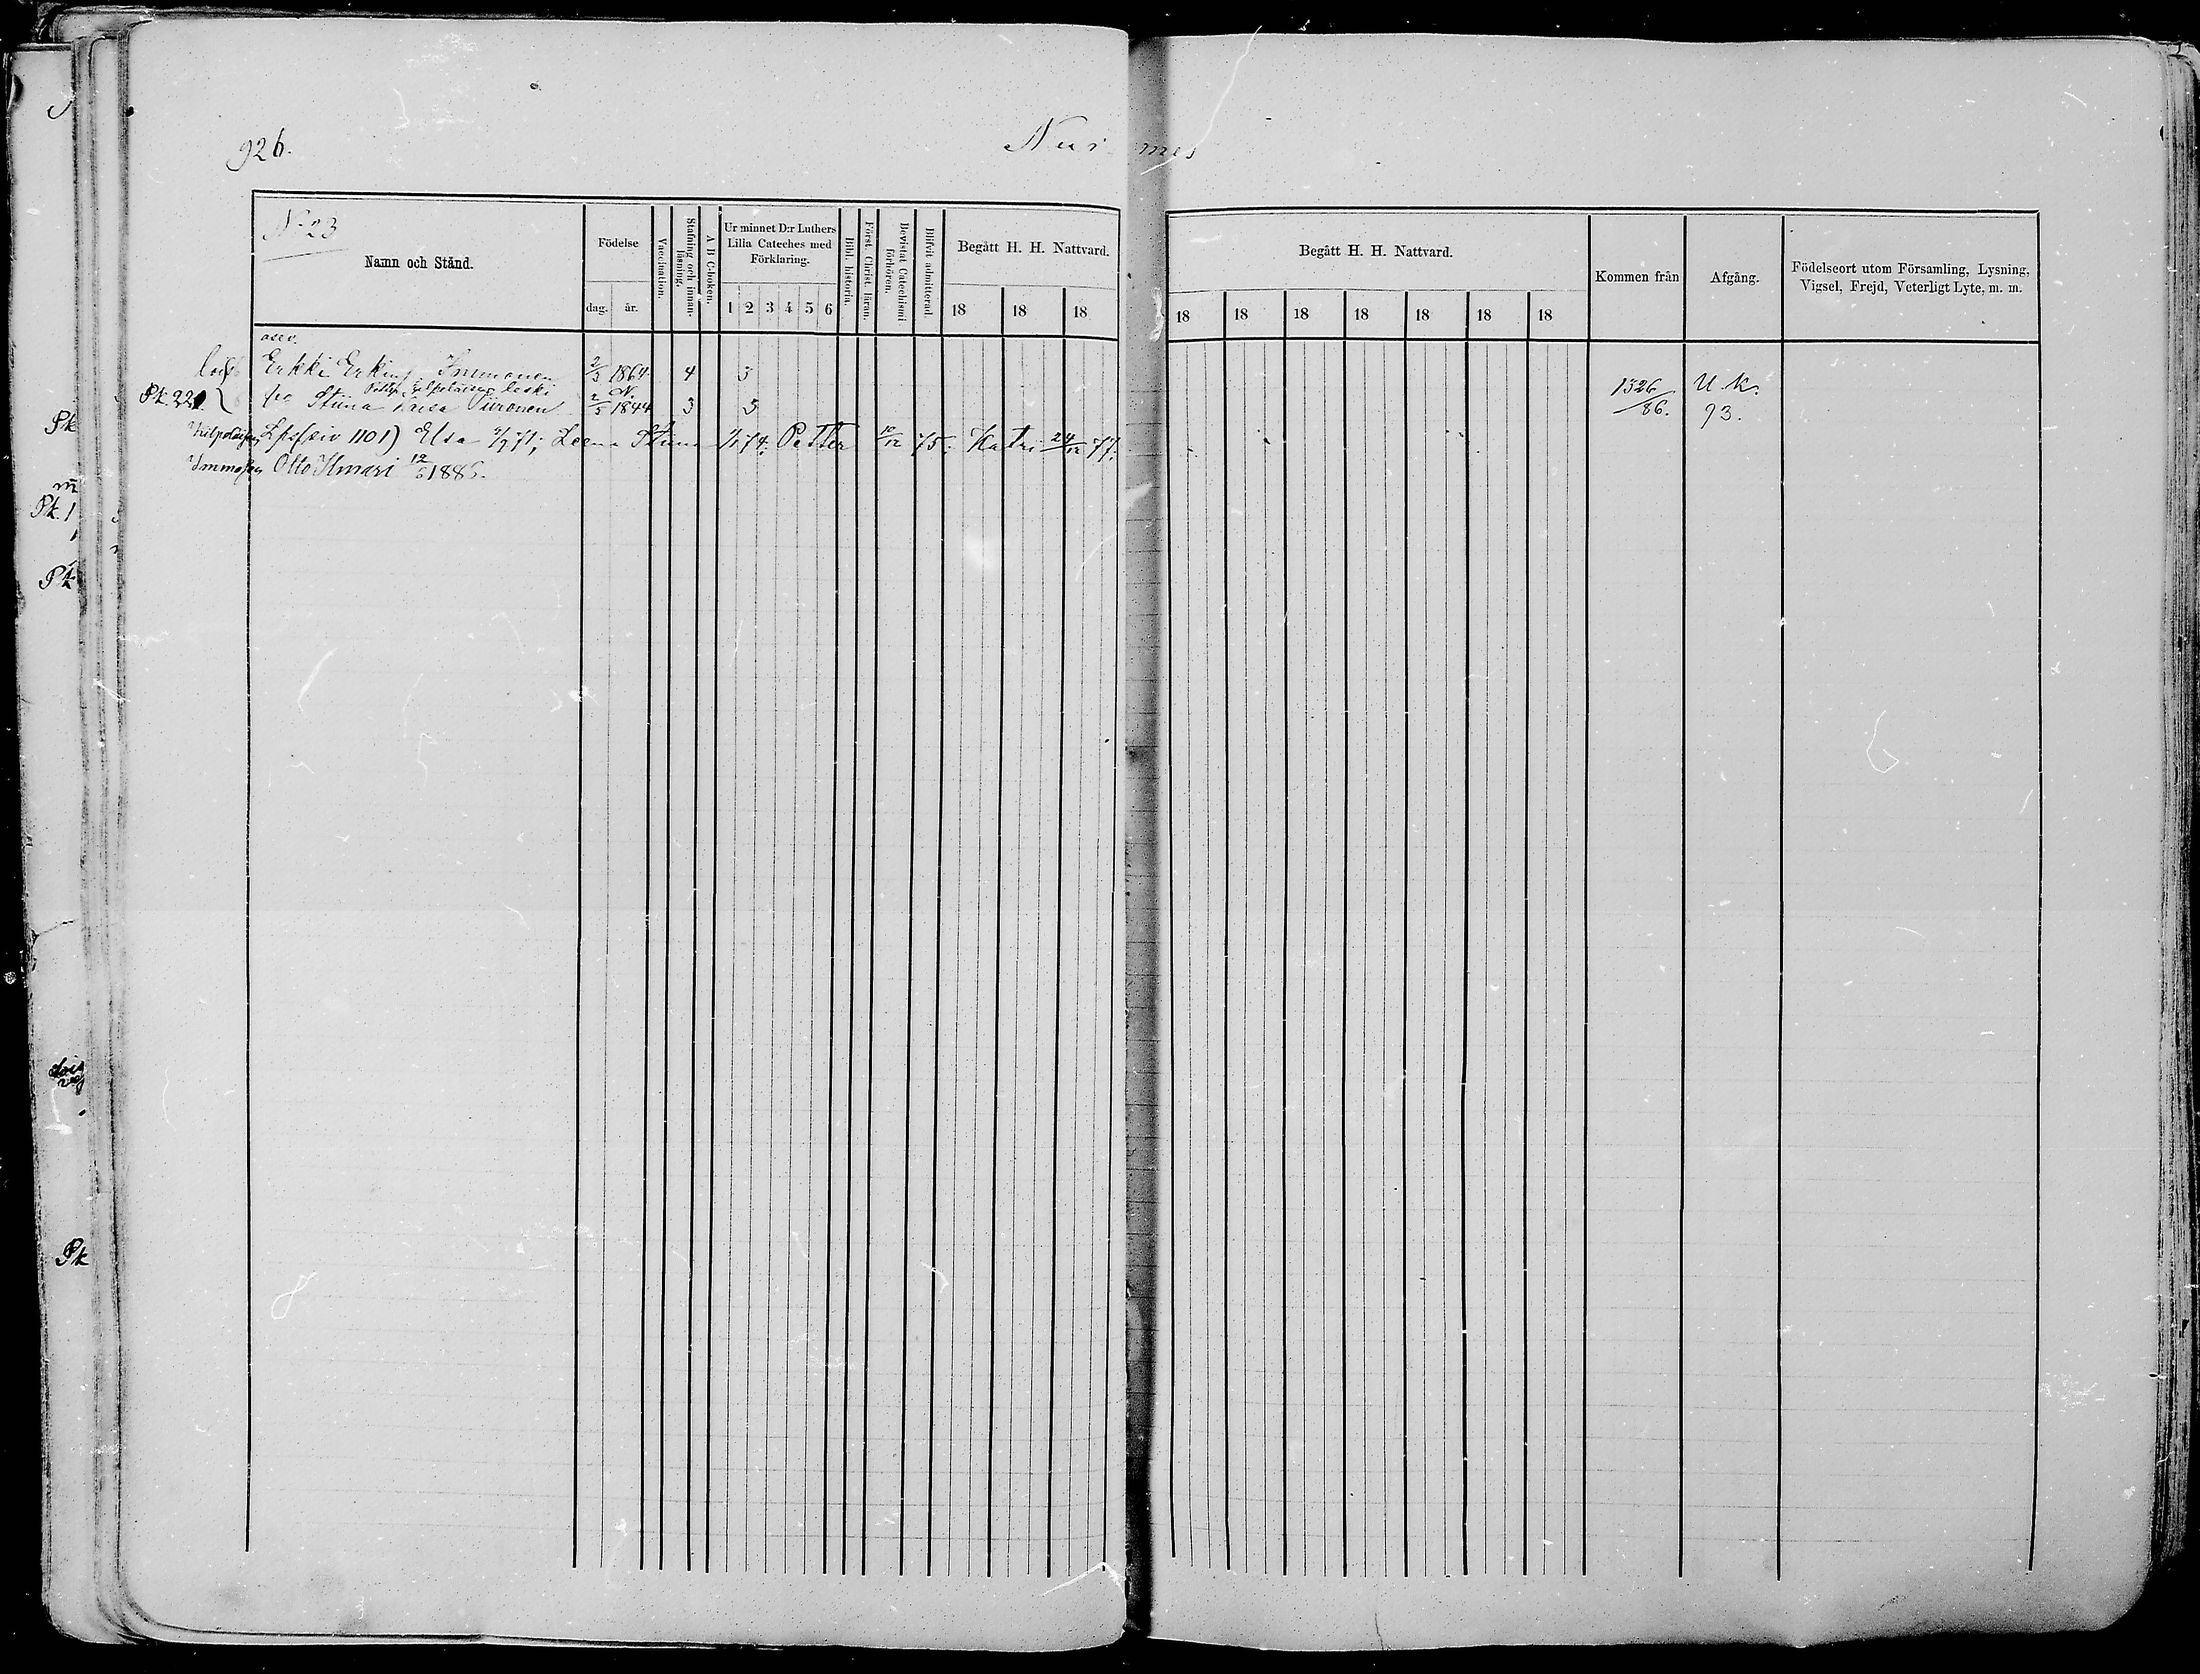 926.
Nurmes
N:23
Namn och Stånd.
Födelse
dag. år.
Vaccination.
Stafning och innanläsning.
A B C-boken.
Ur minnet D:r Luthers Lilla Cateches med Förklaring.
1 2 3 4 5 6
Bibl. historia.
Först. Christ. läran.
Bevistat Catechismi förhören.
Blifvit admitterad.
Begått H. H. Nattvard.
18 18 18
Begått H. H. Nattvard.
18 18 18 18 18 18 18
Kommen från
Afgång.
Födelseort utom Församling, Lysning, Vigsel, Frejd, Veterligt Lyte, m. m.
asev.
Erkki Immonen 2/3 1864 4 3 1326/86. U.K. 93.
leski N.
Pk. 22 Stiina Piironen 2/5 1844 3 3
1101) Elsa 71; Leena Stiina 74; Petter 10/12 75. Katri 24/12 77.
Otto Ilmari 188
Pk
Pk. 1
Pk
Pk